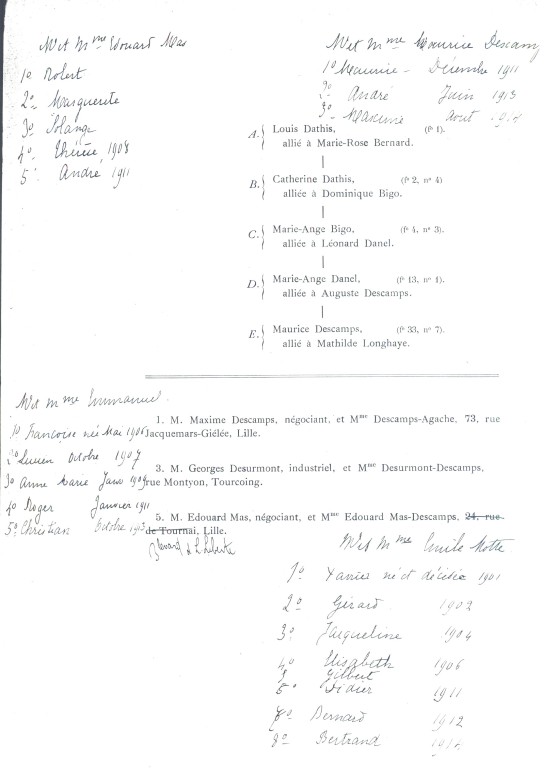 M et Mme Edouard Mas
1º Robert
2º Marguerite
3º Solange
4º Thérèse, 1908
5º André 1911
M et Mme Maurice Descamps
1º Maurice - Décembre 1911
2º André Juin 1913
3º Maxime Aout
A. { Louis Dathis, (fº 1).
allié à Marie-Rose Bernard.
B. { Catherine Dathis, (fº 2, nº 4)
alliée à Dominique Bigo.
C. { Marie-Ange Bigo, (fº 4, nº 3).
alliée à Léonard Danel.
D. { Marie-Ange Danel, (fº 13, nº 1).
alliée à Auguste Descamps.
E. { Maurice Descamps, (fº 33, nº 7).
allié à Mathilde Longhaye.
M et Mme Emmanuel
1º Francoise née Mai 1906
2º Lucien Octobre 1907
3º Anne Marie 1909
4º Roger Janvier 1911
5º Christian Octobre
1. M. Maxime Descamps, négociant, et Mme Descamps-Agache, 73, rue
Jacquemars-Giélée, Lille.
3. M. Georges Desurmont, industriel, et Mme Desurmont-Descamps,
rue Montyon, Tourcoing.
5. M. Edouard Mas, négociant, et Mme Edouard Mas-Descamps, 24, rue
de Tournai, Lille.
de la Liberté
M et Mme Emile Motte
1º Xavier né et décédé 1901
2º Gérard 1902
3º Jacqueline 1904
4º Elisabeth 1906
Gilbert
5º Didier 1911
Bernard 1912
8º Bertrand